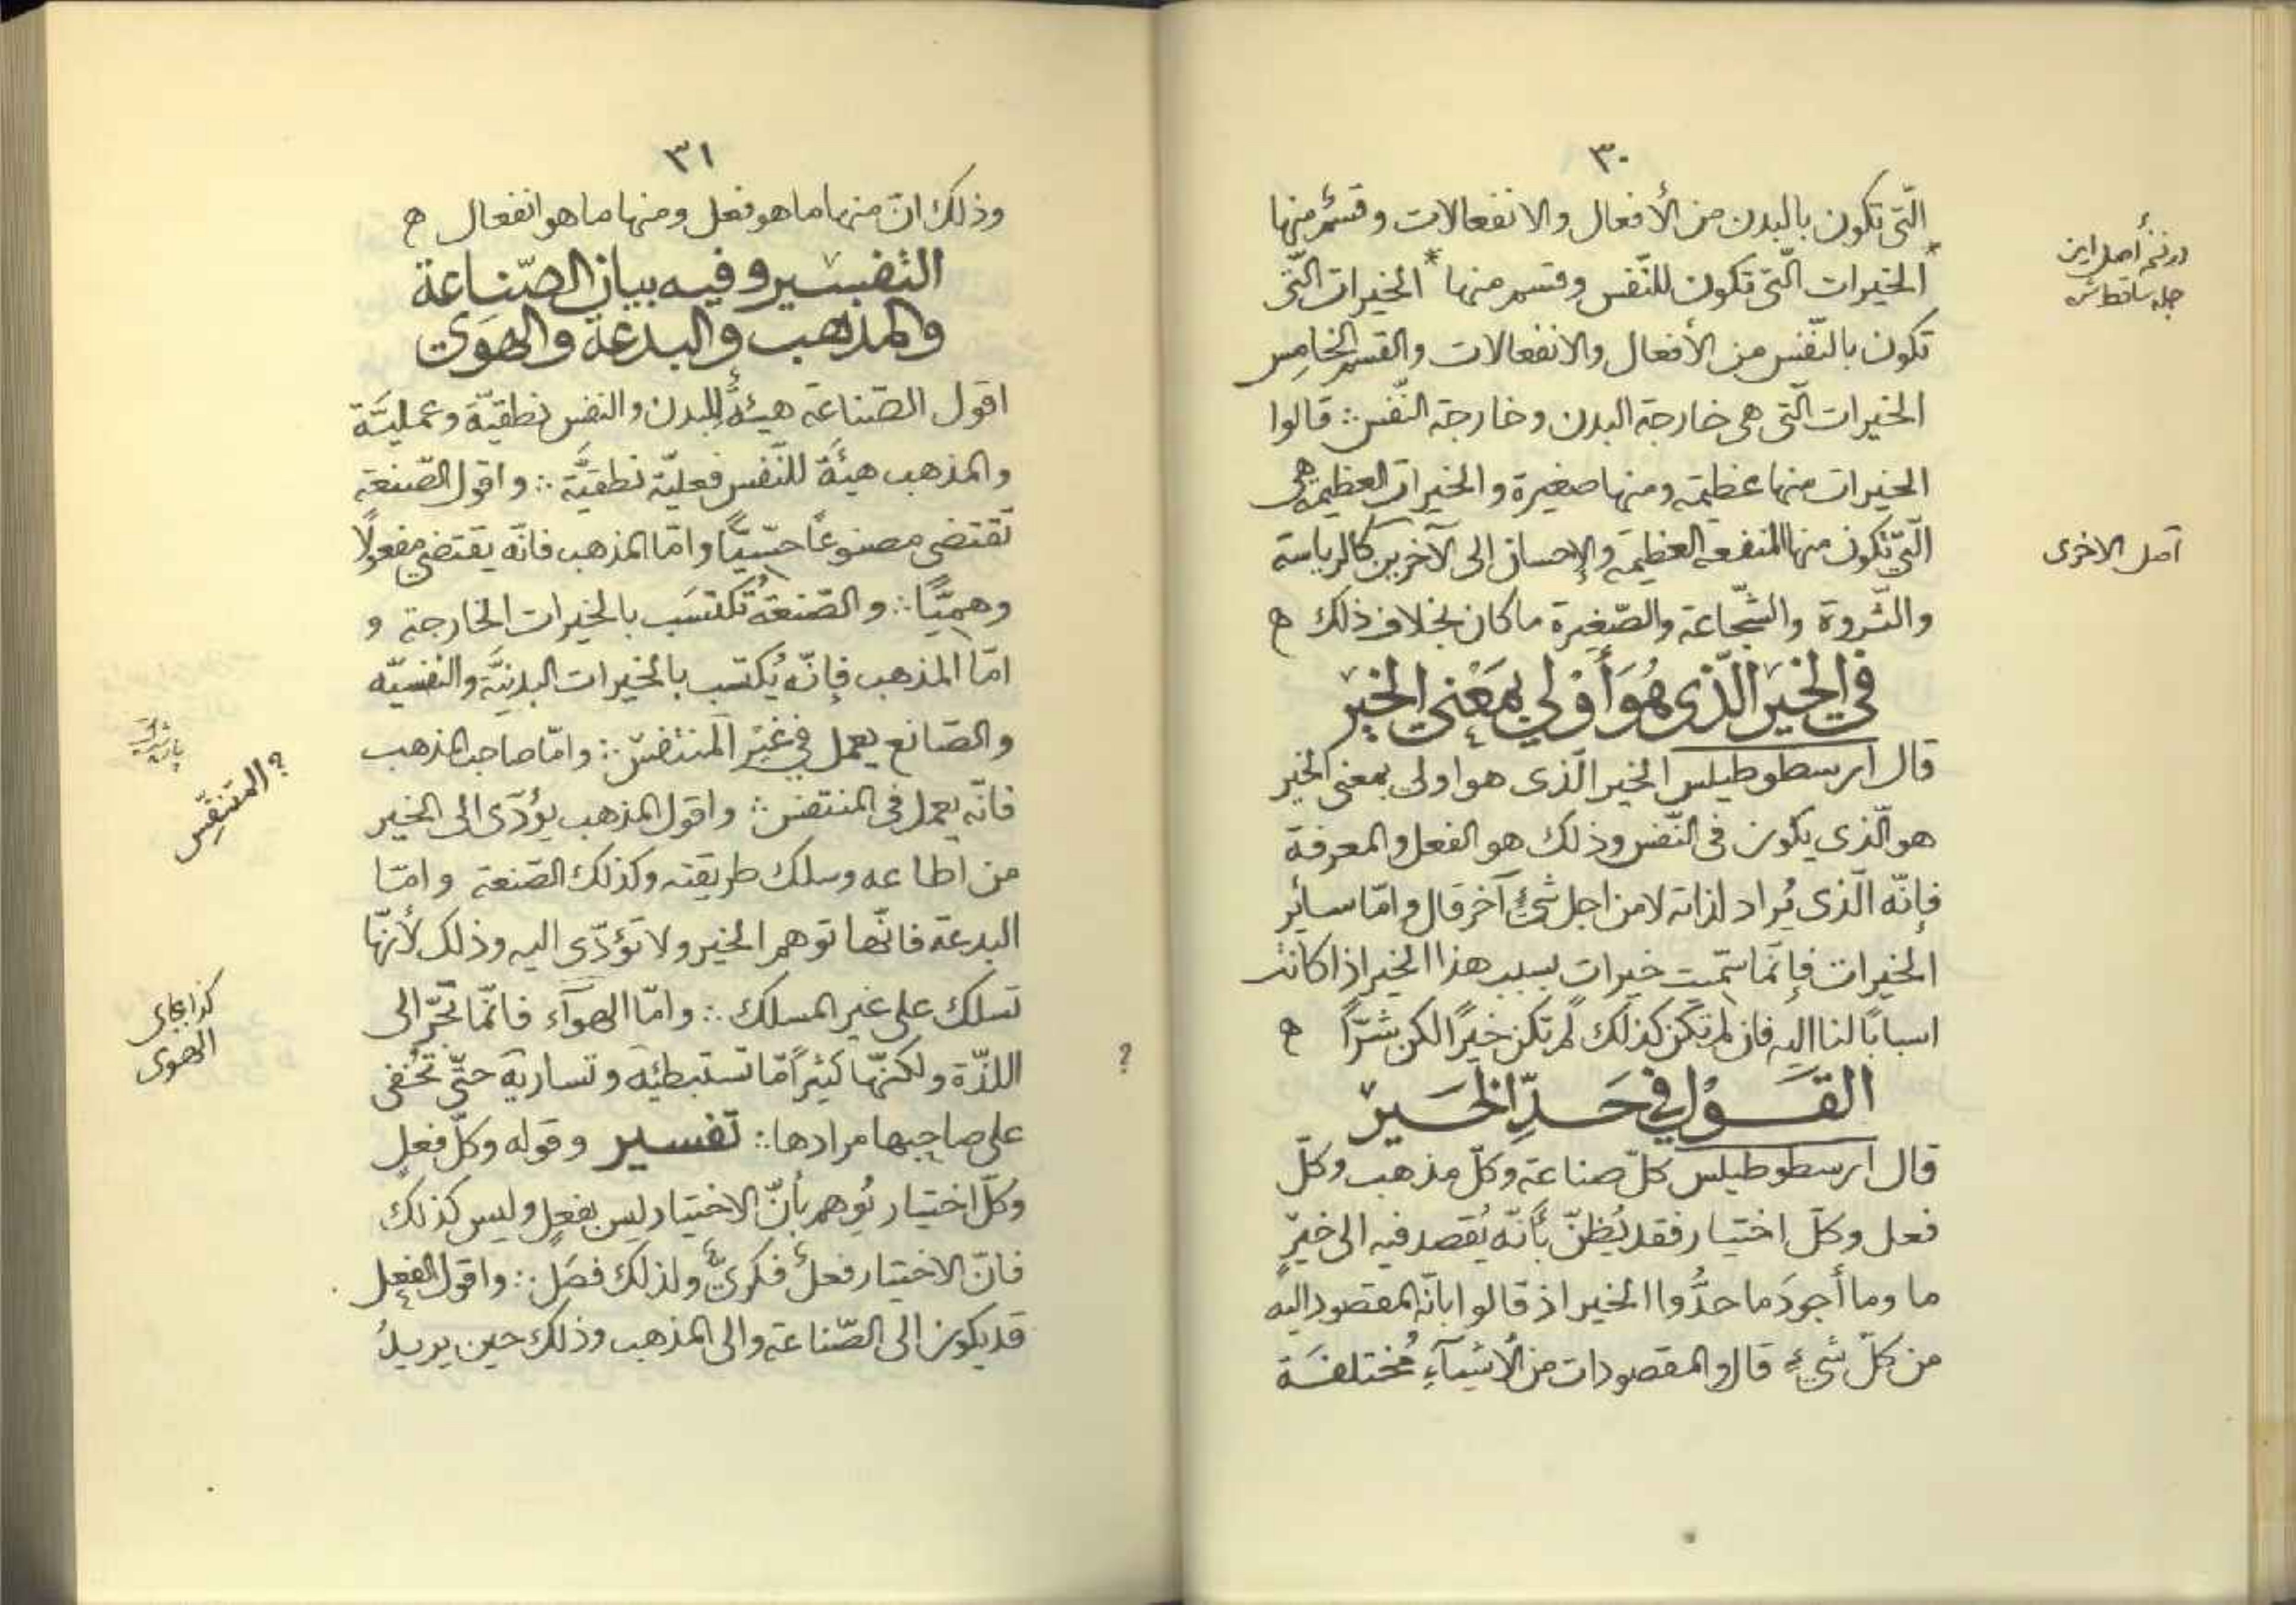 ٣٠
الّتى تكون بالبدن من الأفعال والانفعالات وقسمٌ منها
*الخيرات الّتى تكون للنّفس وقسم منها* الخيرات الّتى
تكون بالنّفس من الأفعال والانفعالات والقسم الخامس
الخيرات الّتى هى خارجة البدن وخارجة النّفس ∴ قالوا
الخيرات منها عظيمة ومنها صغيرة والخيرات العظيمة هى
الّتى تكون منها المنفعة العظيمة والإحسان إلى الآخرين كالرياسة
والثّروة والشّجاعة والصّغيرة ما كان بخلاف ذلك ه
فى الخير الّذى هُوَ أَوْلى بمَعْنى الخير
قال ارسطوطيلس الخير الّذى هو اولى بمعنى الخير
هو الّذى يكون فى النّفس وذلك هو الفعل والمعرفة
فإنّه الّذى يُراد لذاته لا من اجل شئ آخر قال وامّا سائر
الخيرات فإنّما سمّيت خيرات بسبب هذا الخير اذا كانت
اسبابًا لنا اليه فان لم تكن كذلك لم تكن خيرًا لكن شرًّا ه
القَوْل فى حَدِّ الخَير
قال ارسطوطيلس كلّ صناعة وكلّ مذهب وكلّ
فعل وكلّ اختيار فقد يُظنّ بأنّه يُقصد فيه الى خيرٍ
ما وما أجودَ ما حدُّوا الخير اذ قالوا بانّه المقصود اليه
من كلّ شئٍ قال والمقصودات من الأشيآءِ مُختلفَة
در نسخهٔ أصل اين
جمله ساقط است
أصل الاخرى
٣١
وذلك انّ منها ما هو فعل ومنها ما هو انفعال ه
التفسير وفيه بيان الصّناعة
والمذهب والبدعة والهَوى
اقول الصّناعة هيئةٌ للبدن والنفس نطقيّة وعمليّة
والمذهب هيئة للنّفس فعليّة نطقيّة ∴ واقول الصّنعة
تقتضى مصنوعًا حسّيًّا وامّا المذهب فانّه يقتضى مفعولًا
وهميًّا ∴ والصّنعةُ تُكتسَب بالخيرات الخارجة و
امّا المذهب فإنّه يُكتسب بالخيرات البدنيّة والنفسيّه
والصّانع يعمل فى غير المنتفس ∴ وامّا صاحب المذهب
فانّه يعمل فى المنتفس ∴ واقول المذهب يؤدّى الى الخير
من اطاعه وسلك طريقته وكذلك الصّنعة وامّا
البدعة فانّها توهم الخير ولا تؤدّى اليه وذلك لأنّها
تسلك على غير المسلك ∴ وامّا الهوآء فانّما تجّر الى
اللذّة ولكنّها كثيرًا مّا تستبطئه وتساريه حتّى تخفى
على صاحبها مرادها ∴ تفسير وقوله وكلّ فعلٍ
وكلّ اختيار يُوهم بأنّ الاختيار ليس بفعلٍ وليس كذلك
فانّ الاختيار فعلٌ فكرىٌّ ولذلك فصَل ∴ واقول الفعل
قد يكون الى الصّناعة والى المذهب وذلك حين يريدُ
؟ المتنفّس
كذا بجاى
الهوى
؟